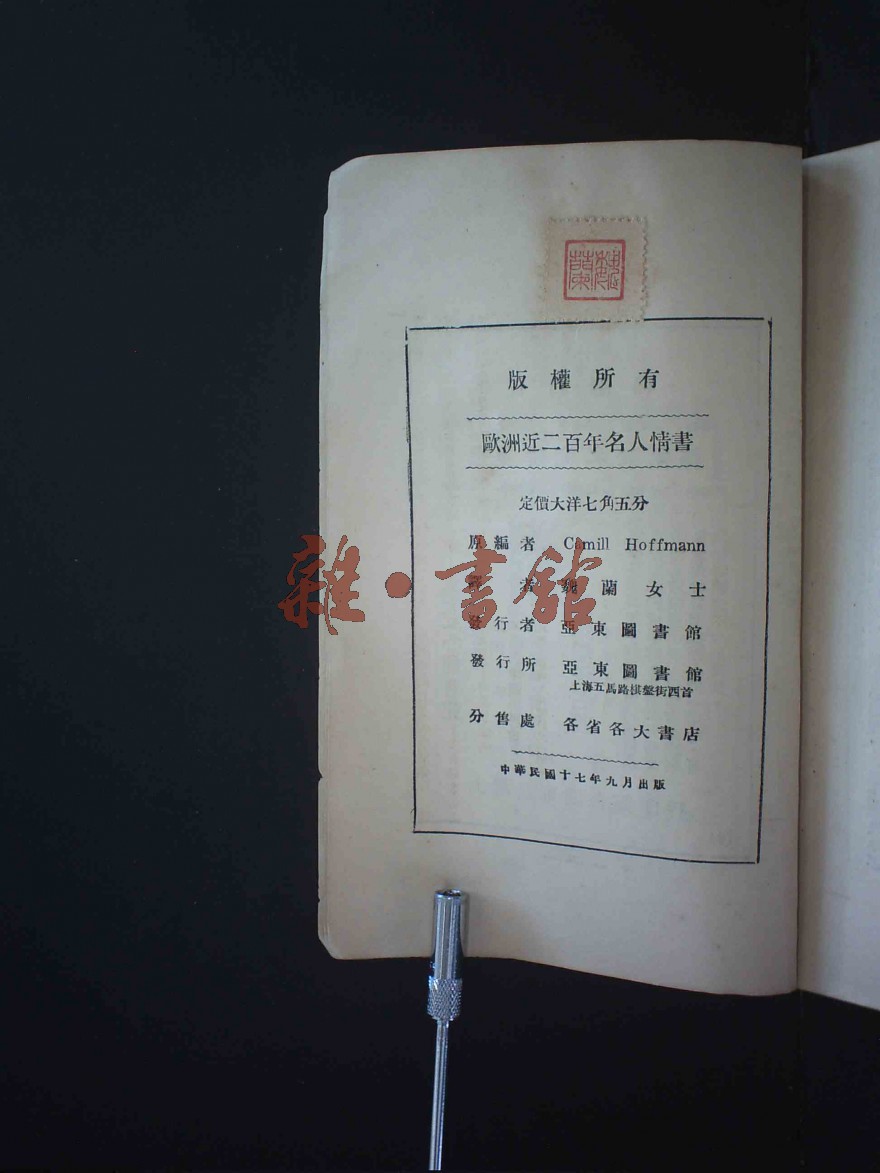 版權所有
歐洲近二百年名人情書
定價大洋七角五分
原編者 Camill Hoffmann
者 魏蘭女士
發行者 亞東圖書館
發行所 亞東圖書館
上海五馬路棋盤街西首
分售處 各省各大書店
中華民國十七年九月出版
雜·書館